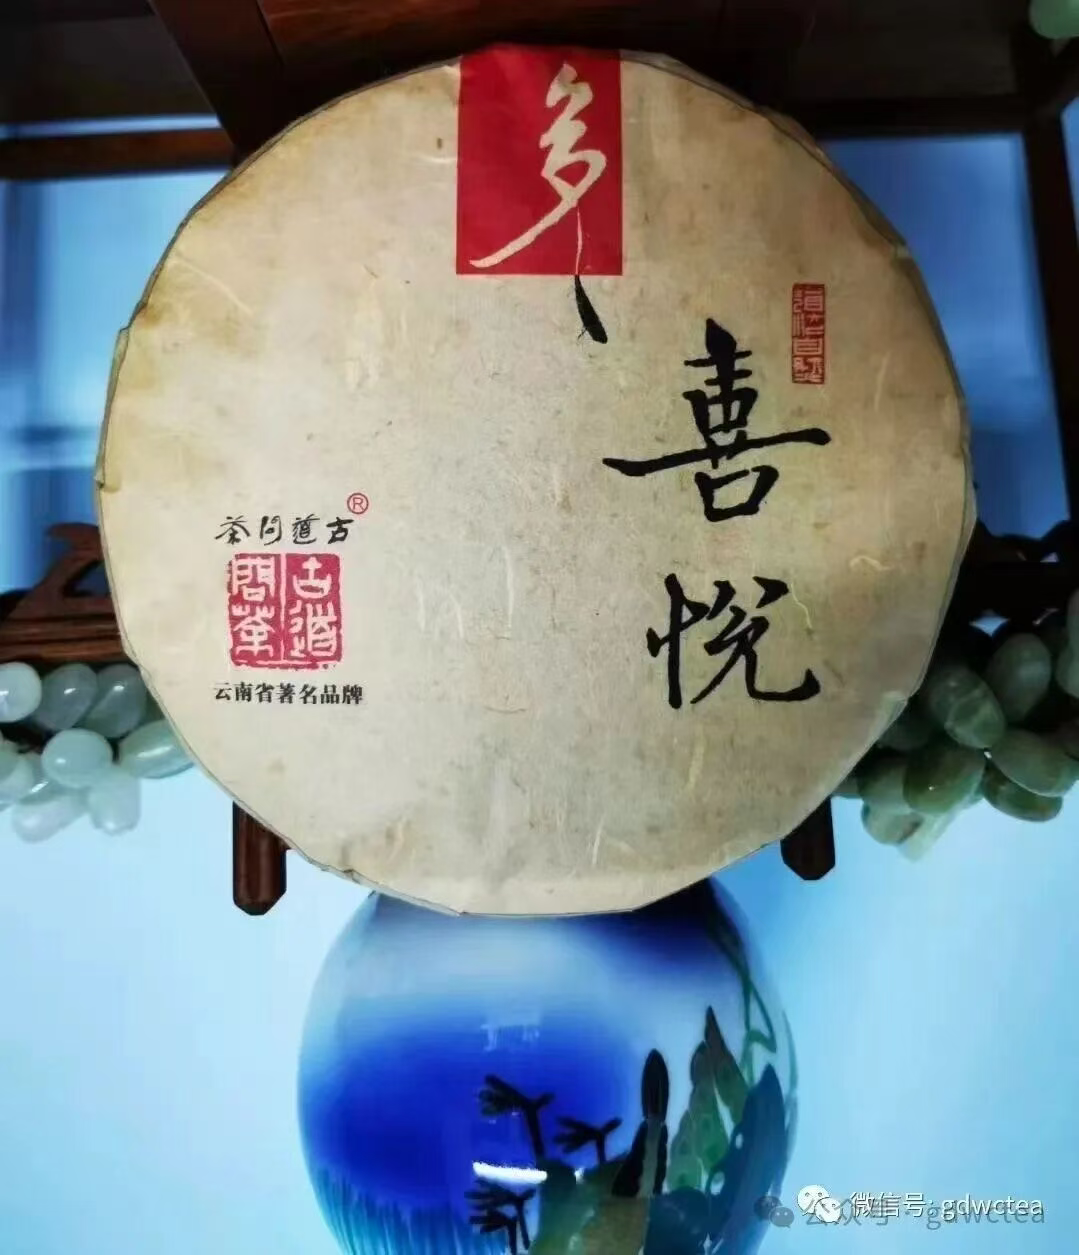 喜悦
道法自然
古道问茶®
古道
問茶
云南省著名品牌
微信号: gdwctea
公众号 · gdwctea